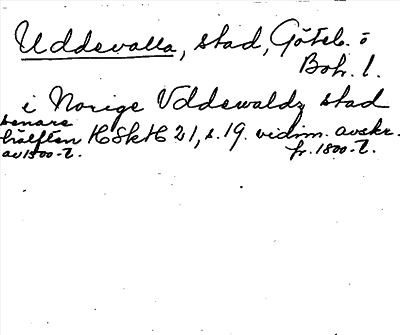 Uddevalla, stad, Göteb. o
Boh. l.
i Norige Vddewaldz stad
senare hälften av 1500-t. HSkH 21, s. 19. vidim. avskr.
fr. 1800-t.